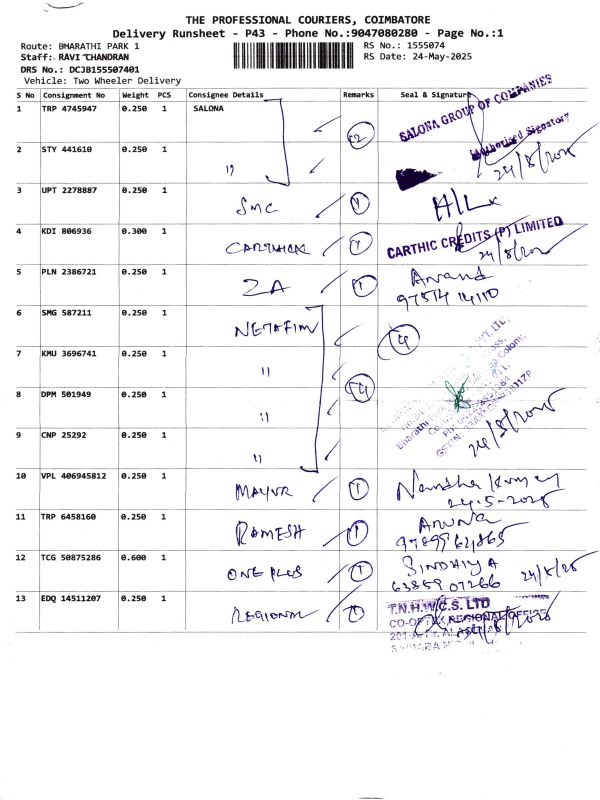 THE PROFESSIONAL COURIERS, COIMBATORE
Delivery Runsheet - P43 - Phone No.:9047080280 - Page No.:1
Route: BHARATHI PARK 1
RS No.: 1555074
Staff: RAVI CHANDRAN
RS Date: 24-May-2025
DRS No.: DCJB155507401
Vehicle: Two Wheeler Delivery
S No Consignment No Weight PCS Consignee Details Remarks Seal & Signature
1 TRP 4745947 0.250 1 SALONA 2 SALONA GROUP OF COMPANIES
Authorised Signatory
2 STY 441610 0.250 1 "
3 UPT 2278887 0.250 1 SMC 1
4 KDI 806936 0.300 1 CARTHICK 1 CARTHIC CREDITS (P) LIMITED
5 PLN 2386721 0.250 1 ZA 1 Anand
97514 14110
6 SMG 587211 0.250 1 NETAFIM 4
7 KMU 3696741 0.250 1 "
8 DPM 501949 0.250 1 " 4
9 CNP 25292 0.250 1 "
10 VPL 406945812 0.250 1 MAYUR 1
24.5-2025
11 TRP 6458160 0.250 1 RAMESH 1 Aruna
12 TCG 50875286 0.600 1 ONE PLUS 1 SINDHIYA
63859 07266
13 EDQ 14511207 0.250 1 REGIONAL 1 T.N.H.W.C.S. LTD
CO-OPTEX REGIONAL OFFICE